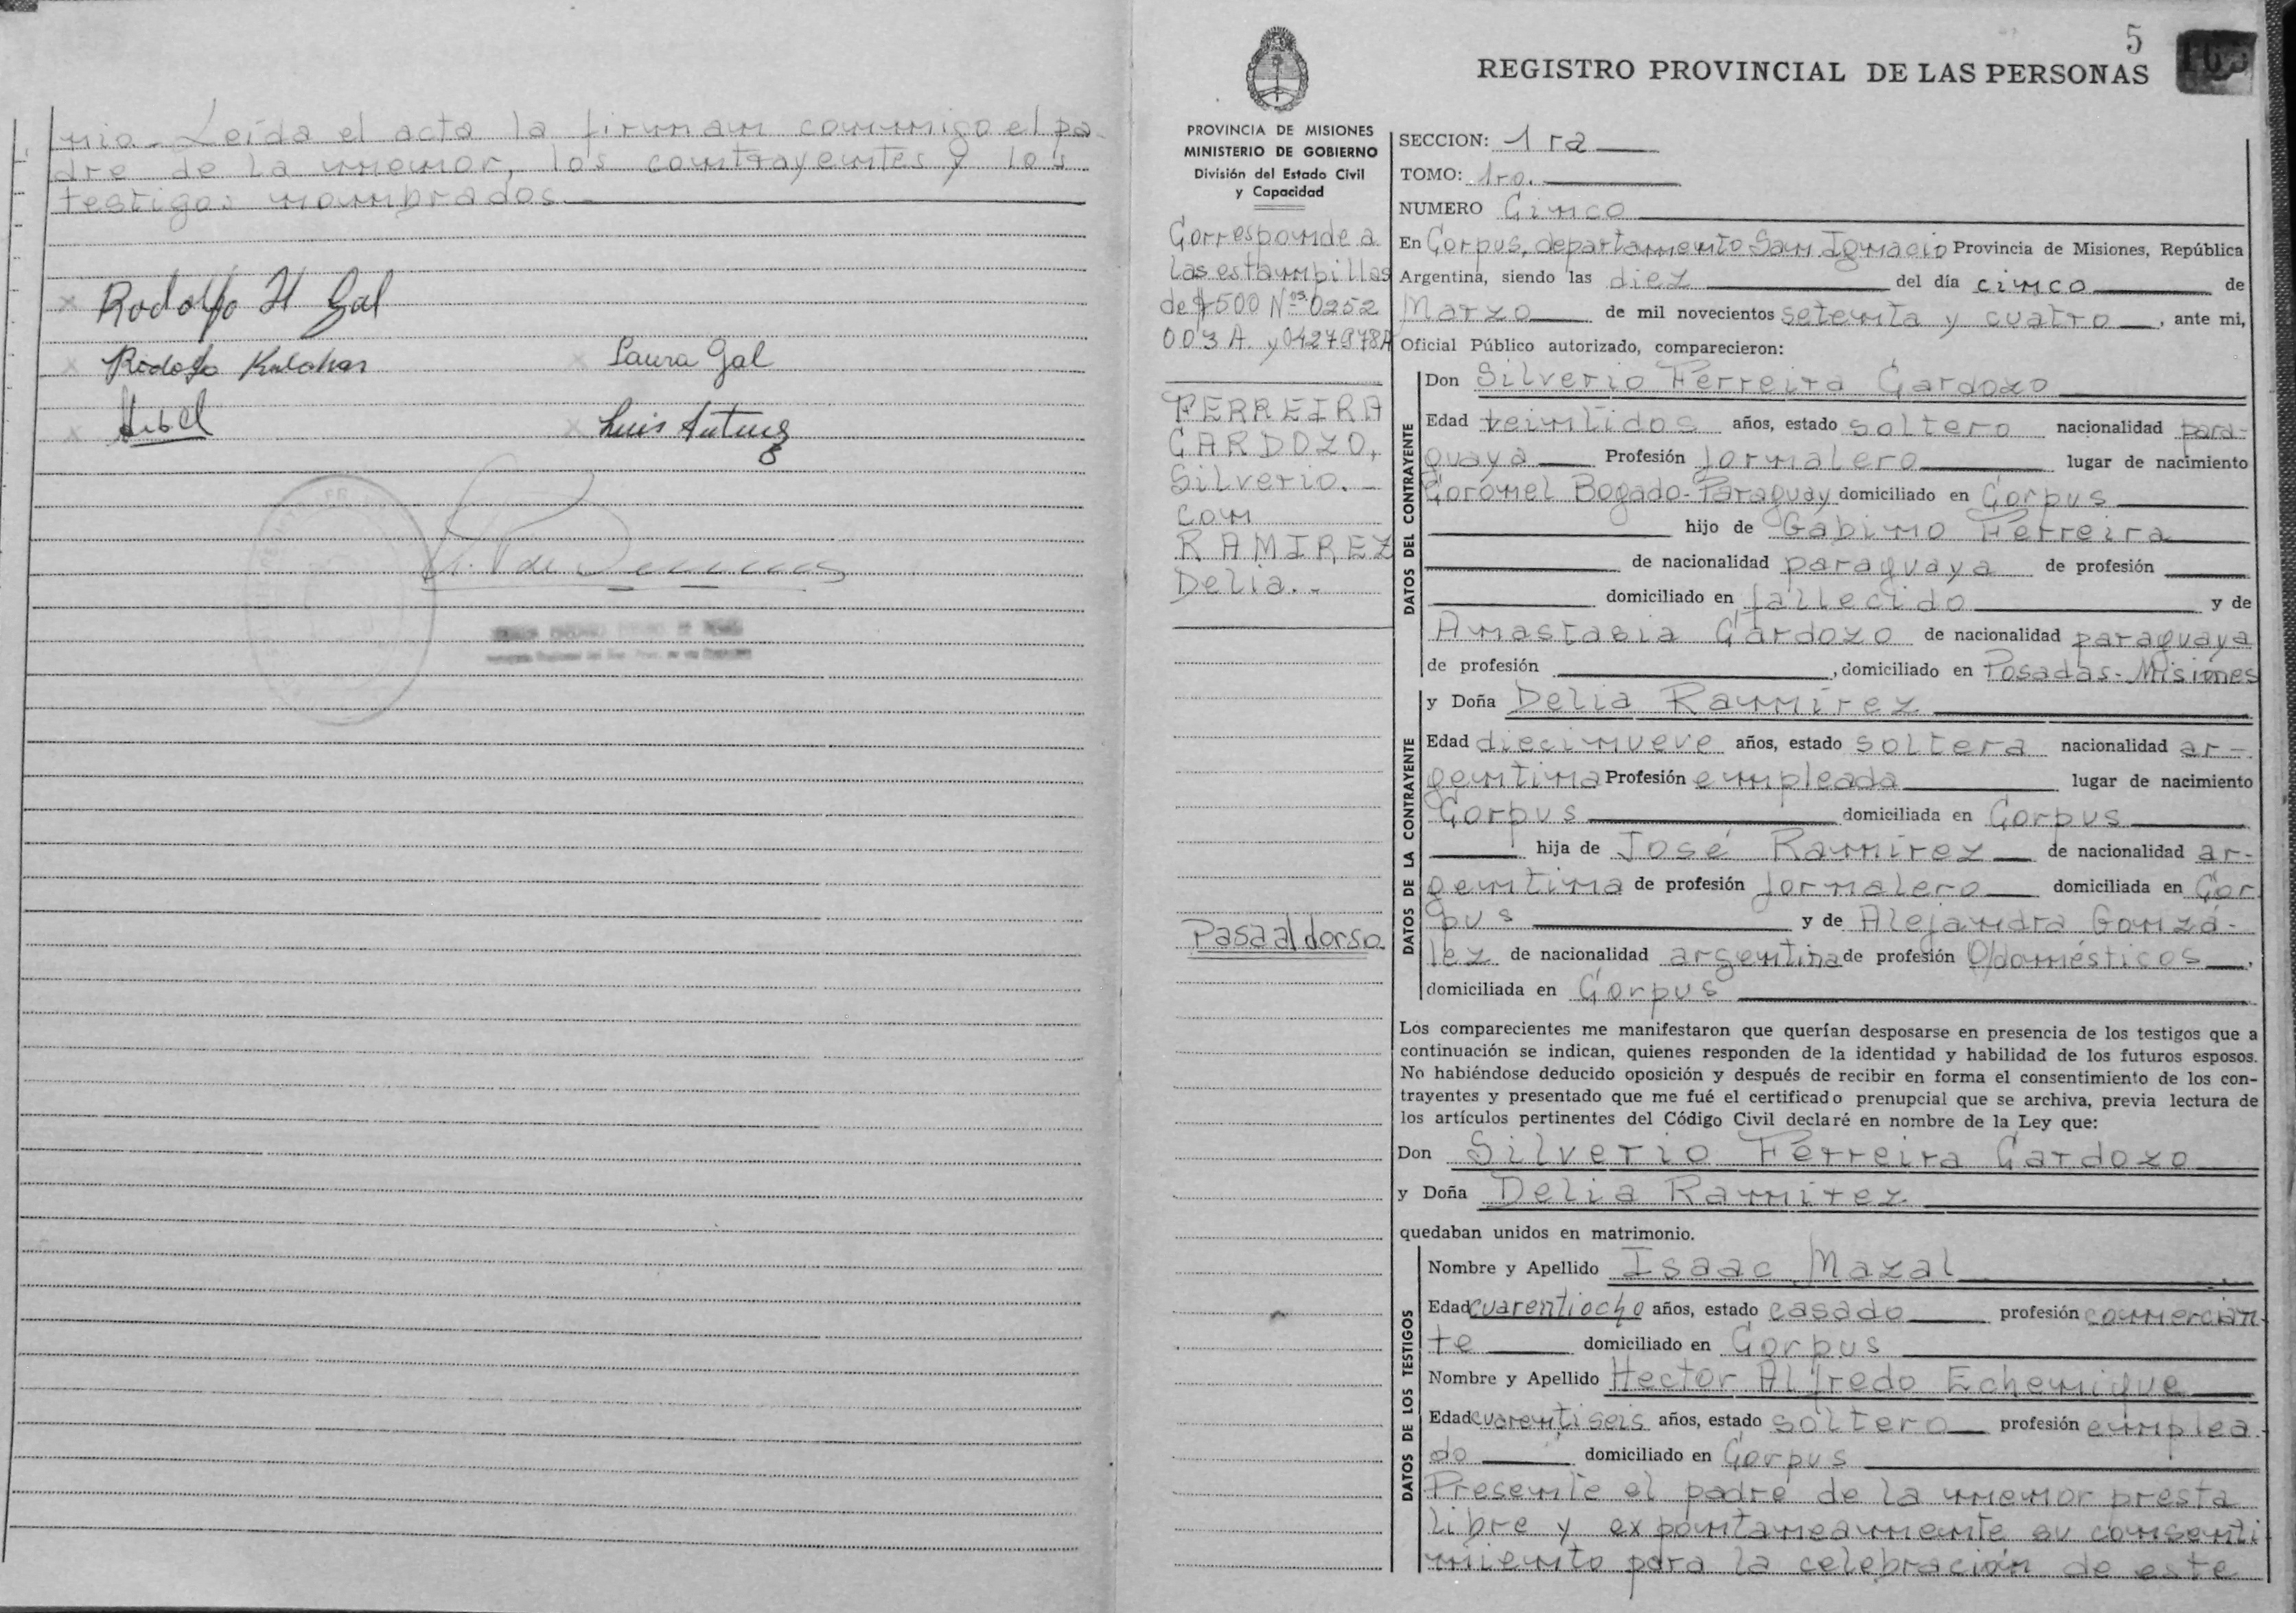 nio.- Leída el acta la firman conmigo el pa-
dre de la menor, los contrayentes y los
testigos nombrados.
Rodolfo H Gal
Laura Gal
Luis Antunez
5
REGISTRO PROVINCIAL DE LAS PERSONAS
PROVINCIA DE MISIONES
MINISTERIO DE GOBIERNO
División del Estado Civil
y Capacidad
Corresponde a
las estampillas
de $500 Nos. 0252
003 A. y 0427978A
FERREIRA
CARDOZO,
Silverio.-
con
RAMIREZ
Delia.-
Pasa al dorso
SECCION: 1 ra
TOMO: 1ro.
NUMERO Cinco
En Corpus, departamento San Ignacio Provincia de Misiones, República
Argentina, siendo las diez del día cinco de
Marzo de mil novecientos setenta y cuatro, ante mi,
Oficial Público autorizado, comparecieron:
DATOS DEL CONTRAYENTE
Don Silverio Ferreira Cardozo
Edad veintidos años, estado soltero nacionalidad para-
guaya Profesión Jornalero lugar de nacimiento
Coronel Bogado-Paraguay domiciliado en Corpus
hijo de Gabino Ferreira
de nacionalidad paraguaya de profesión
domiciliado en fallecido y de
Anastasia Cardozo de nacionalidad paraguaya
de profesión , domiciliado en Posadas-Misiones
DATOS DE LA CONTRAYENTE
y Doña Delia Ramírez
Edad diecinueve años, estado soltera nacionalidad ar-
gentina Profesión empleada lugar de nacimiento
Corpus domiciliada en Corpus
hija de José Ramirez de nacionalidad ar-
gentina de profesión Jornalero domiciliada en Cor
pus y de Alejandra Gonzá-
lez de nacionalidad argentina de profesión Q/domésticos,
domiciliada en Corpus
Los comparecientes me manifestaron que querían desposarse en presencia de los testigos que a
continuación se indican, quienes responden de la identidad y habilidad de los futuros esposos.
No habiéndose deducido oposición y después de recibir en forma el consentimiento de los con-
trayentes y presentado que me fué el certificado prenupcial que se archiva, previa lectura de
los artículos pertinentes del Código Civil declaré en nombre de la Ley que:
Don Silverio Ferreira Cardozo
y Doña Delia Ramirez
quedaban unidos en matrimonio.
DATOS DE LOS TESTIGOS
Nombre y Apellido Isaac Mazal
Edad cuarentiocho años, estado casado profesión comercian-
te domiciliado en Corpus
Nombre y Apellido Hector Alfredo Echenique
Edad cuarentiseis años, estado soltero profesión emplea-
do domiciliado en Corpus
Presente el padre de la menor presta
libre y expontaneamente su consenti
miento para la celebración de este